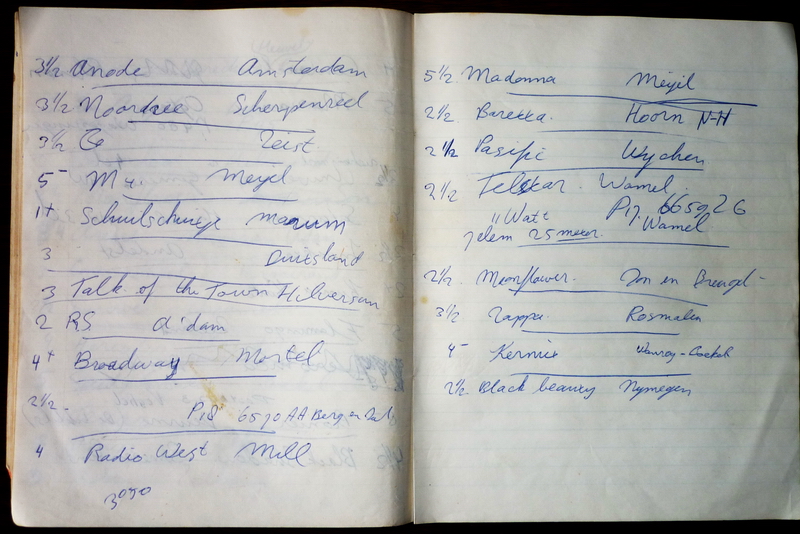 3 1/2 Anode Amsterdam
3 1/2 Noordzee Scherpenzeel
3 1/2 Zeist
5- Meyel
1+ Marum
3 Duitsland
3 Talk of the Town Hilversum
2 RS A'dam
4+ Broadway Mortel
2 1/2 - 6570 AA Berg en Dal
4 Radio West Mill
3090
5 1/2 Madonna Meyel
2 1/2 Barekka Hoorn N-H
2 1/2 Pasific Wychen
2 1/2 Telstar Wamel
" Watt P17 6659 Z G
25 meter Wamel
2 1/2 Moonflower Son en Breugel
3 1/2 Zappa Rosmalen
4-
2 1/2 Black beauty Nymegen